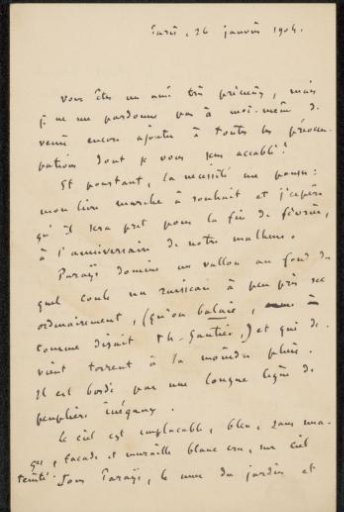 Paris, 26 janvier 1904.
Vous êtes un ami très précieux, mais
je ne me pardonne pas à moi-même de
venir encore ajouter à toutes les préoccu-
pations dont je vous sens accablé !
Et pourtant, la nécessité me pousse :
mon livre marche à souhait et j'espère
qu'il sera prêt pour la fin de février,
à l'anniversaire de notre malheur.
Paraÿs domine un vallon au fond du
quel coule un ruisseau à peu près sec
ordinairement, (qu'on balaie,
comme disait Th. Gautier,) et qui de-
vient torrent à la moindre pluie.
Il est bordé par une longue ligne de
peupliers inégaux.
Le ciel est implacable, bleu, sans nua-
ges, façade et muraille blanc cru, sur ciel
teinté. Sous Paraÿs, le mur du jardin et